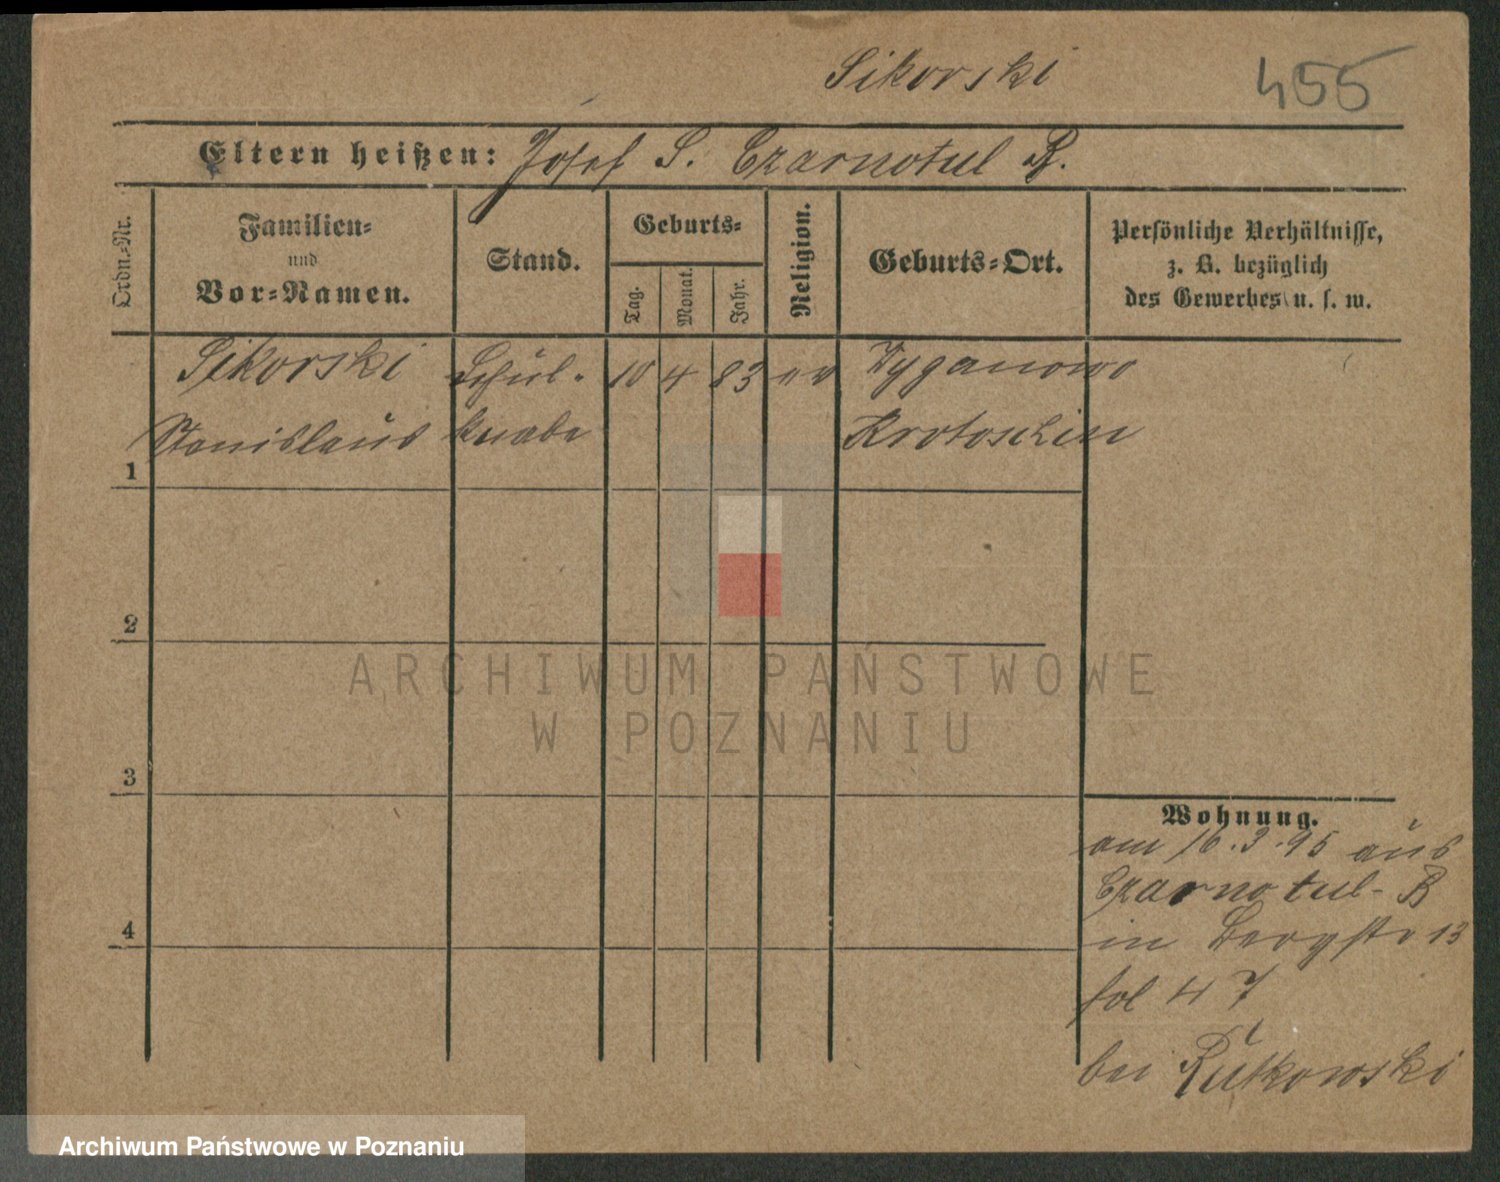 Sikorski 455
Eltern heißen: Josef S. Czarnotul B.
Ordn.=Nr. Familien= und Vor=Namen. Stand. Geburts= Tag. Monat. Jahr. Religion. Geburts=Ort. Persönliche Verhältnisse, z. B. bezüglich des Gewerbes u. s. w.
Sikorski Schul- 10 4 83 Wyganowo
1 Stanislaus knabe Krotoschin
2
3
4
Wohnung.
am 16.3.95 aus
Czarnotul-B
in Bergstr 13
fol 47
bei Rutkowski
ARCHIWUM PAŃSTWOWE
W POZNANIU
Archiwum Państwowe w Poznaniu